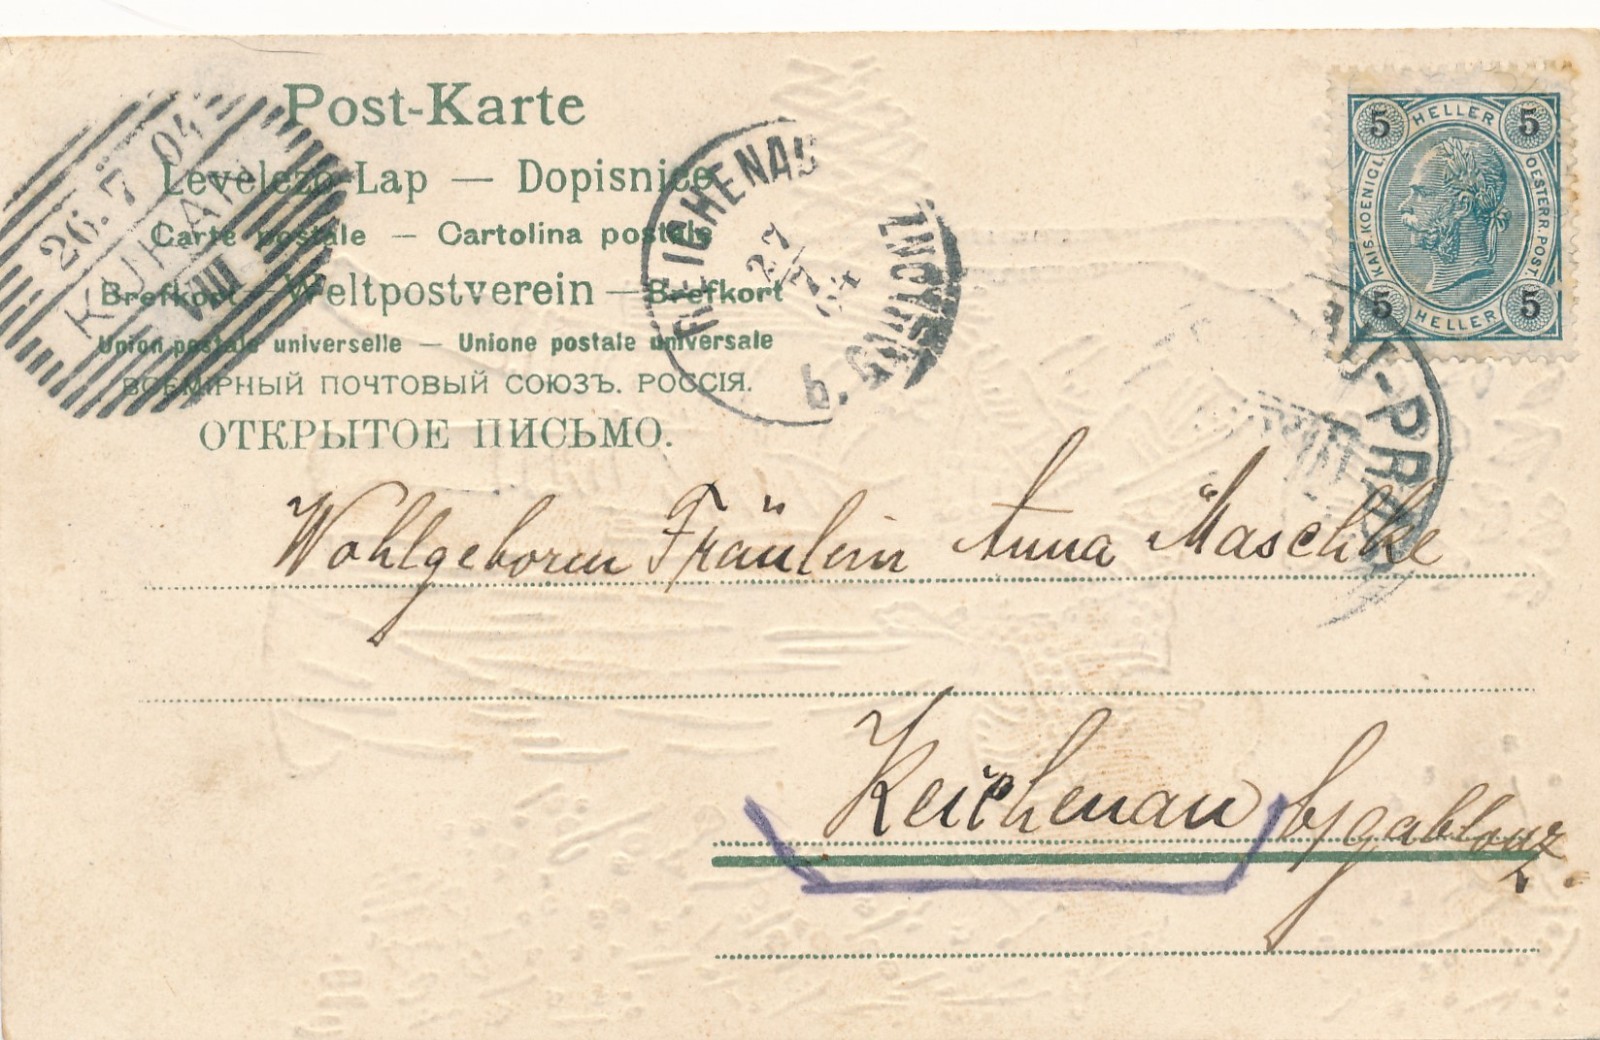 Post-Karte
Levelező-Lap — Dopisnice
Carte postale — Cartolina postale
Brefkort — Weltpostverein — Brefkort
Union postale universelle — Unione postale universale
ВСЕМІРНЫЙ ПОЧТОВЫЙ СОЮЗЪ. РОССІЯ.
ОТКРЫТОЕ ПИСЬМО.
26.7 04
VIII
REICHENAU
27
7
04
b. GABLONZ
5 HELLER 5
KAIS. KOENIGL.
OESTERR. POST.
5 HELLER 5
Wohlgeboren Fräulein Anna Maschke
Reichenau b/gablonz